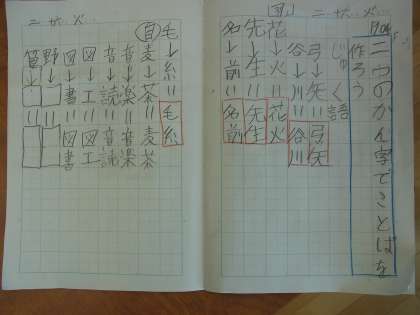 二つのかん字でことばを
作ろう
じゅく語
弓→矢=弓矢
谷→川=谷川
花→火=花火
先→生=先生
名→前=名前
自
毛→糸=毛糸
麦→茶=麦茶
音→楽=音楽
音→読=音読
図→工=図工
図→書=図書
野→